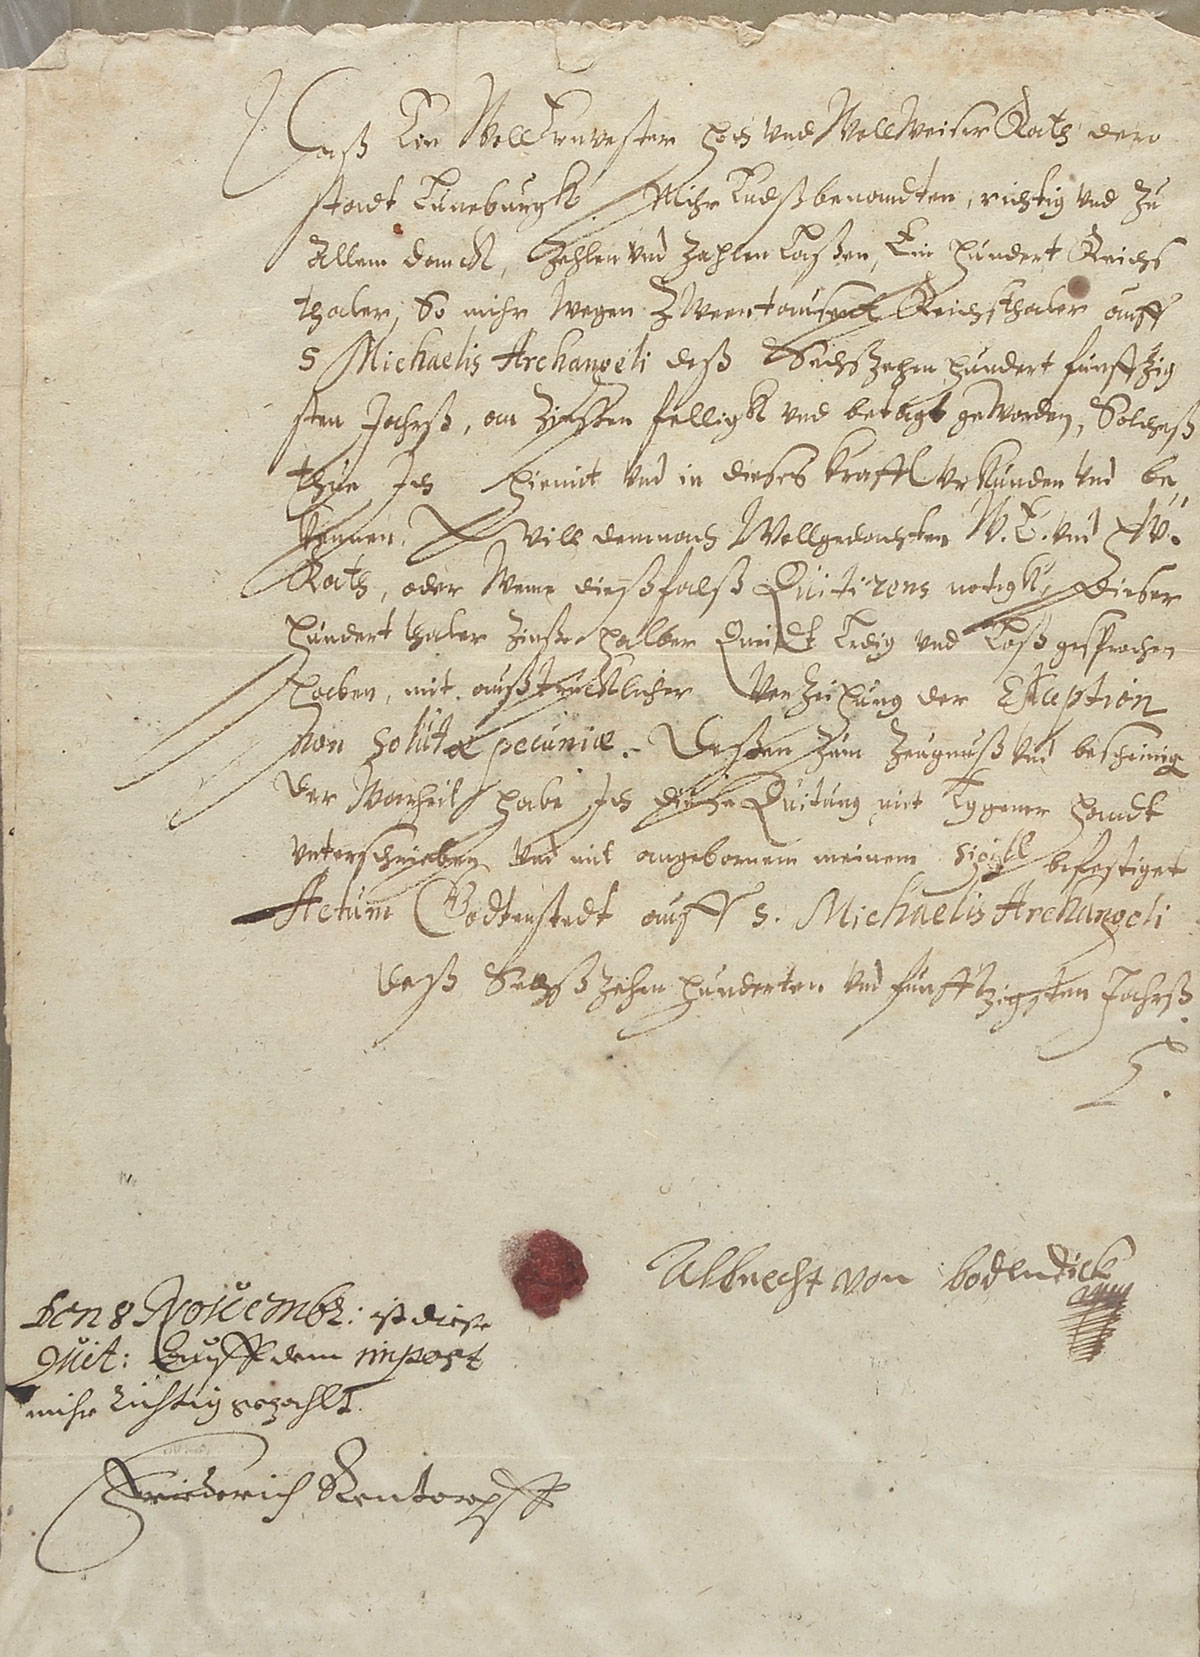 Daß Ein WollErnvester Hoch und WollWeiser Rath dero
stadt Lüneburgk Mihr Endßbenandten, richtig und zu
Allem danck, Zehlen und Zahlen Laßen, Ein hundert Reichs
thaler, So mihr wegen Zweentausent Reichsthaler auff
S Michaelis Archangeli deß Sechszehenhundert funfftzig
sten Jahrß, an Zinßen felligk und betagt geworden, Solcheß
thue Ich hiemit und in dieses krafft Urkunden und be
kennen. Will demnach Wollgedachten W. E. und H W.
Rath, oder Weme dießfalß Quitirens notigk, Dieser
hundert thaler Zinße halber Quidt Ledig und Loß gesprochen
haben, mit außtrücklicher Verzeihung der Exception
non solutæ pecuniæ. Deßen Zum Zeugnuß und bescheinig
der Warheit habe Ich diese Quitung mit Eygener Handt
unterschrieben und mit angebornem meinem Sigill befestiget
Actum Bodtenstedt auff S. Michaelis Archangeli
deß Sechßzehen hunderten und funfftzigsten Jahrß
Albrecht von bodendick
Den 8 Novembr: ist diese
Quit: Auff dem impost
mihr richtig bezahlt.
Friederich Rentorpff